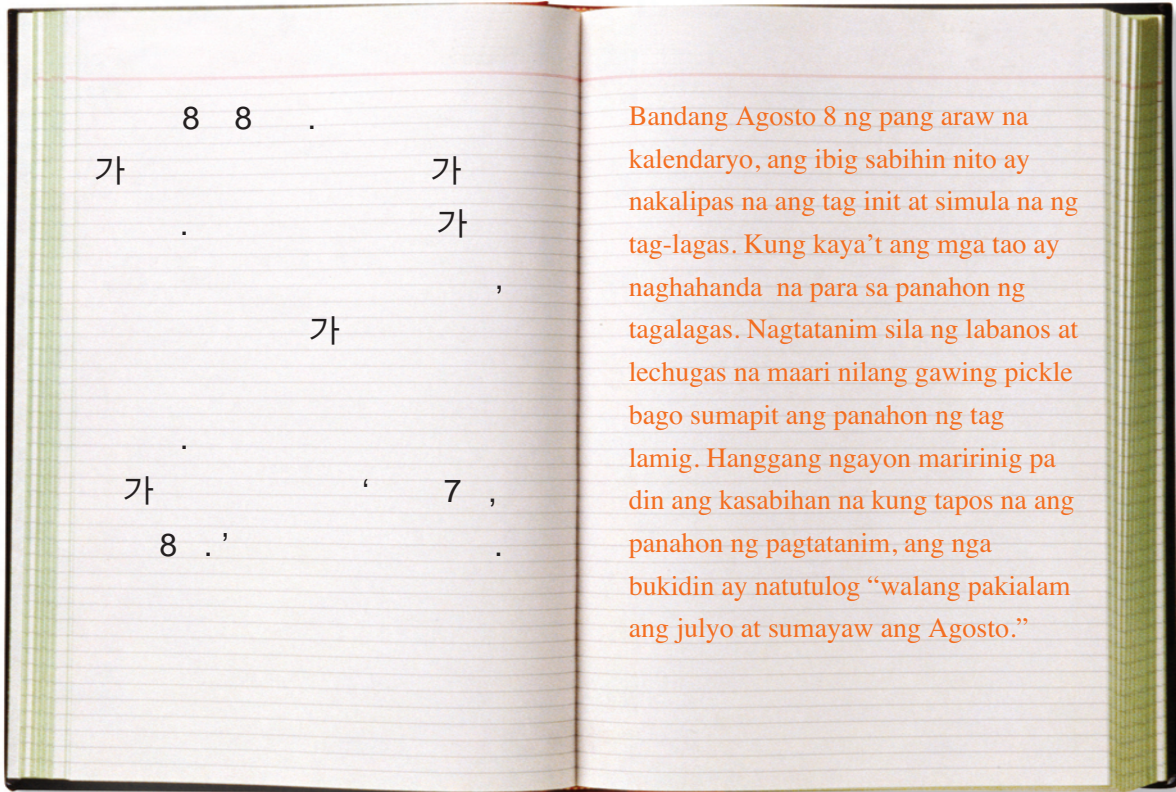 8 8 .
가 가
. 가
,
가
.
가 ‘ 7 ,
8 .’ .
Bandang Agosto 8 ng pang araw na
kalendaryo, ang ibig sabihin nito ay
nakalipas na ang tag init at simula na ng
tag-lagas. Kung kaya’t ang mga tao ay
naghahanda na para sa panahon ng
tagalagas. Nagtatanim sila ng labanos at
lechugas na maari nilang gawing pickle
bago sumapit ang panahon ng tag
lamig. Hanggang ngayon maririnig pa
din ang kasabihan na kung tapos na ang
panahon ng pagtatanim, ang nga
bukidin ay natutulog “walang pakialam
ang julyo at sumayaw ang Agosto.”